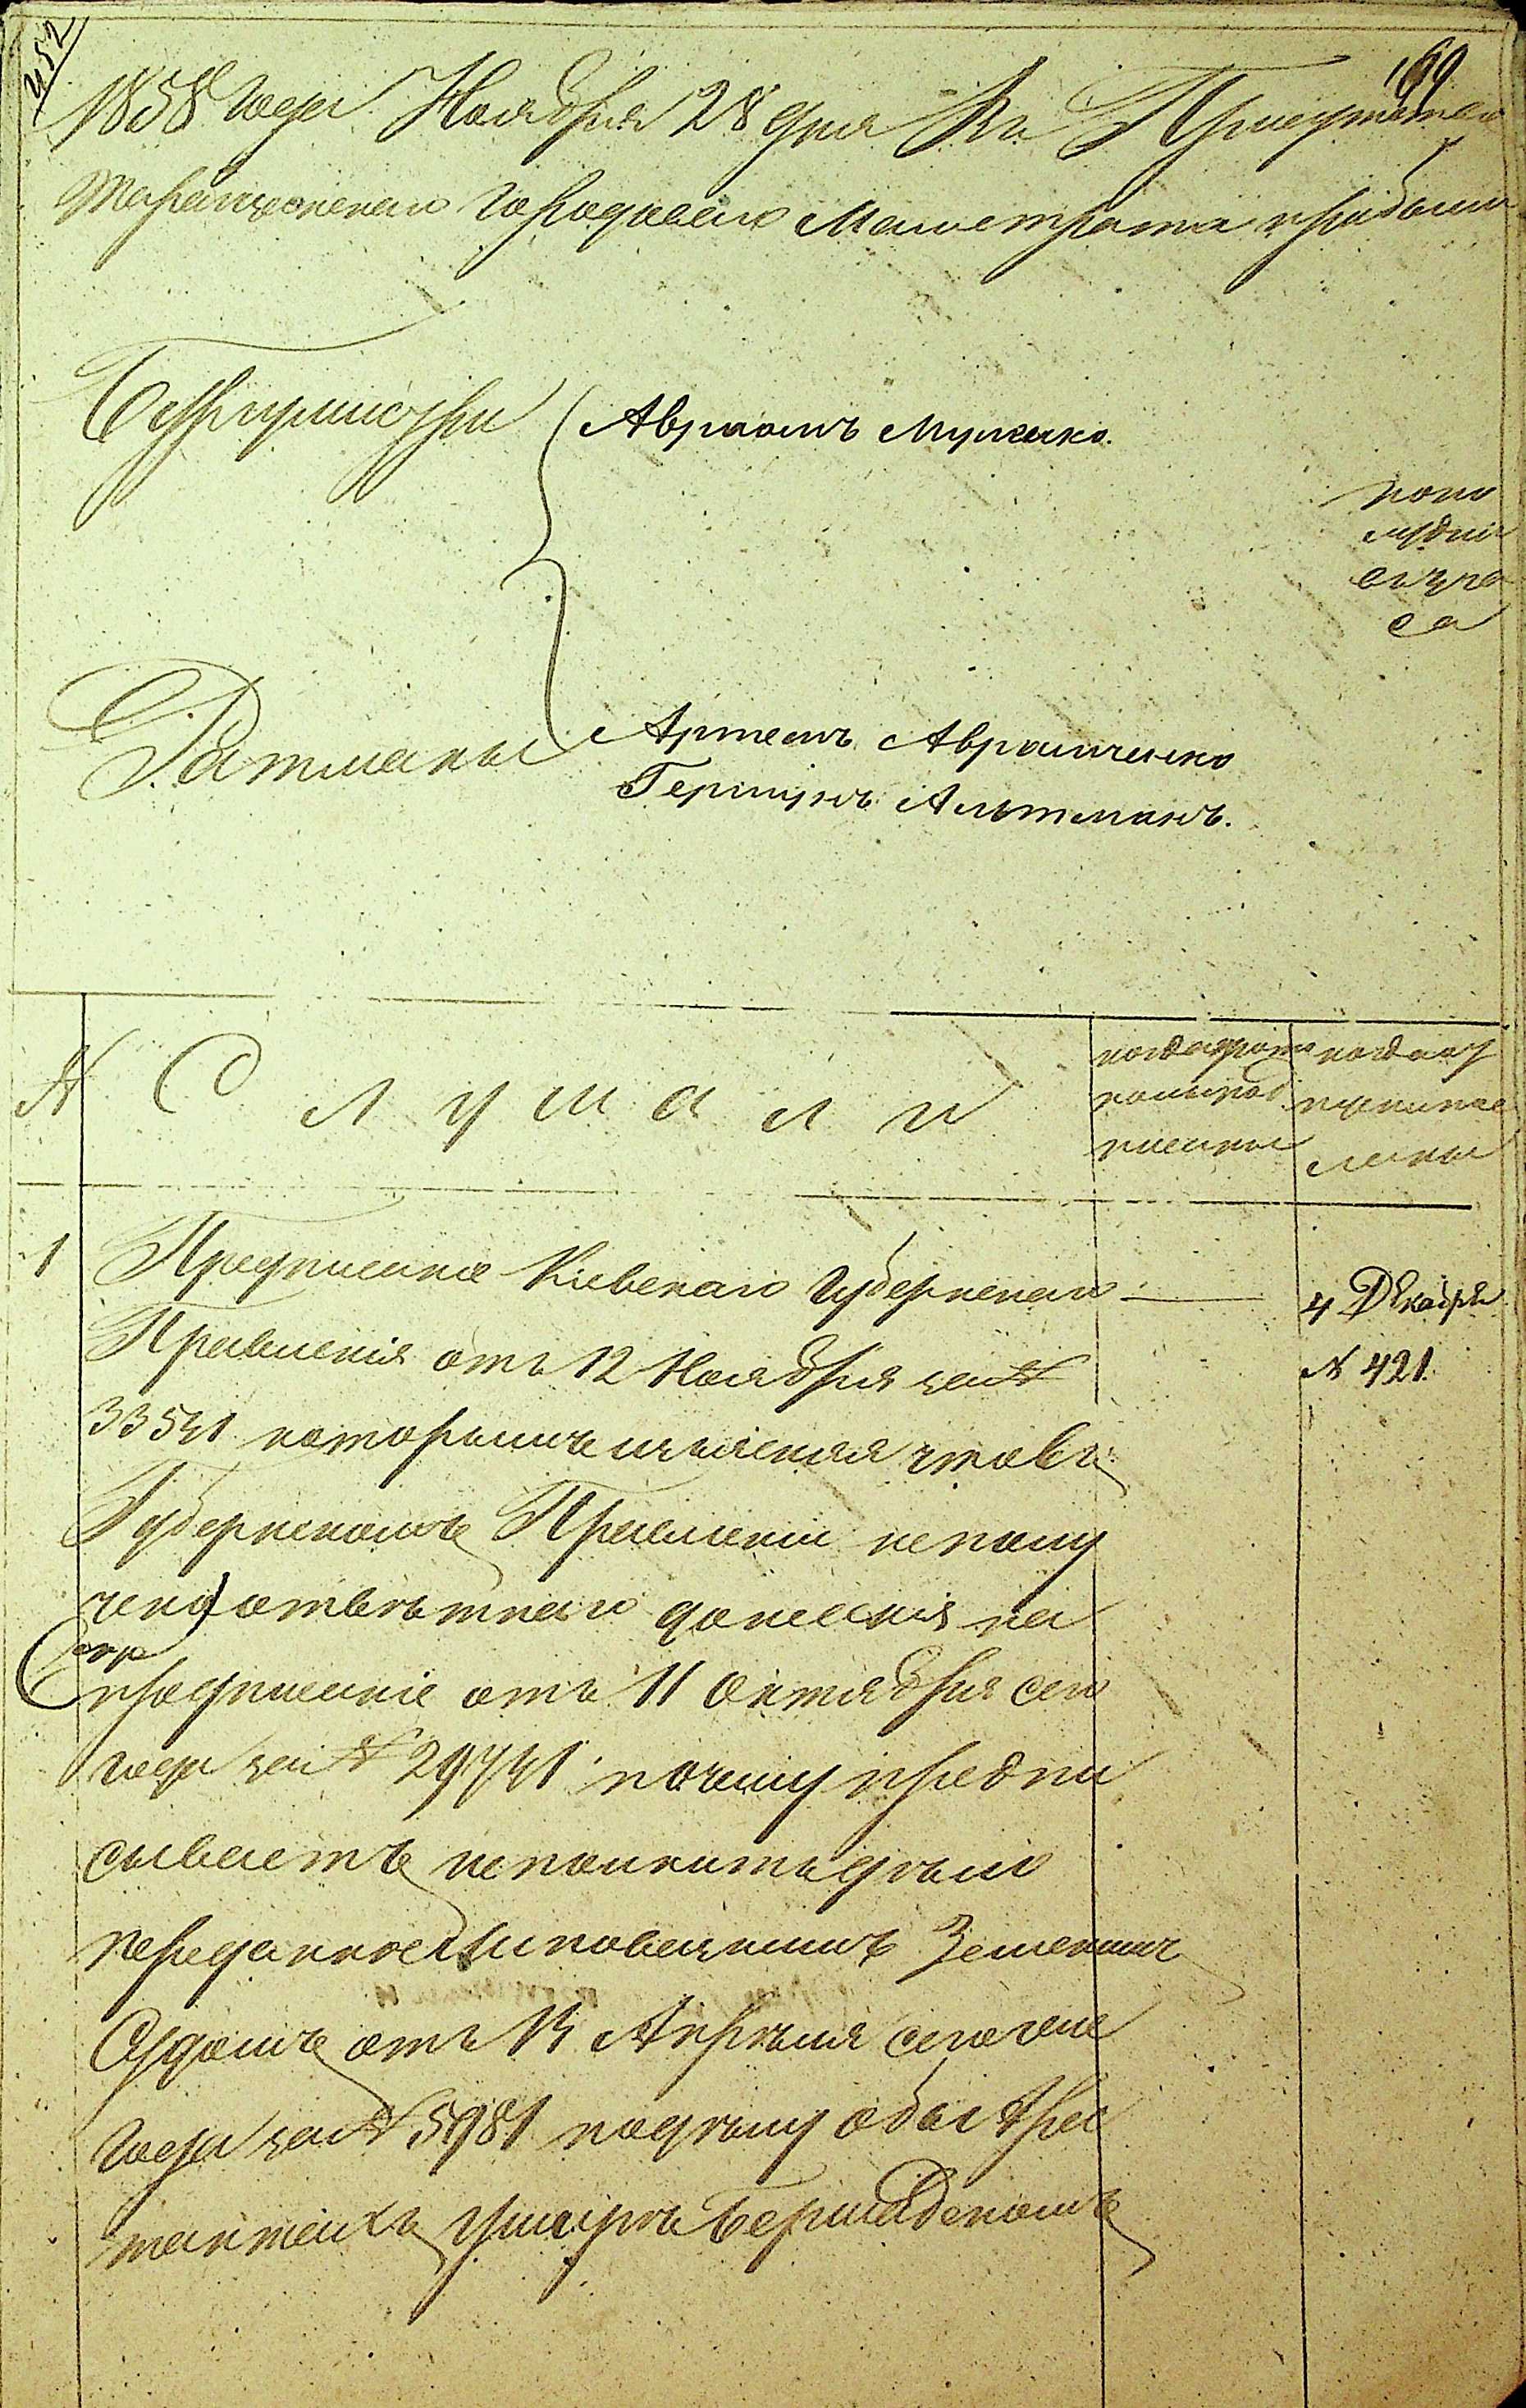 452
169
1858 года Ноября 28 дня Въ Присутствіе
Таращанскаго Городоваго Магистрата прибыли
Бургомистры
Авраамъ Муленко.
попо
лудни
въ
са
Ратманы
Артемъ Авраменко
Гершунъ Альтманъ.
№
Слушали
когда прото
колъ под
писанъ
когда
исполне
1
Предписаніе Кіевскаго Губернскаго
Правленія отъ 12 Ноября за №
33541 которымъ изъясняя что въ
Губернскомъ Правленіи не полу
чено отвѣтнаго донесенія на
предписаніе отъ 11 Октября сего
года за № 29741 почему предпи
сываетъ непоннитъ дѣло
переданное Липовецкимъ Земскимъ
Судомъ отъ 13 Апрѣля сего же
года за № 5981 по дѣлу объ Арес
тантахъ Умырѣ Бершадскомъ
4 Декабря
№ 421.